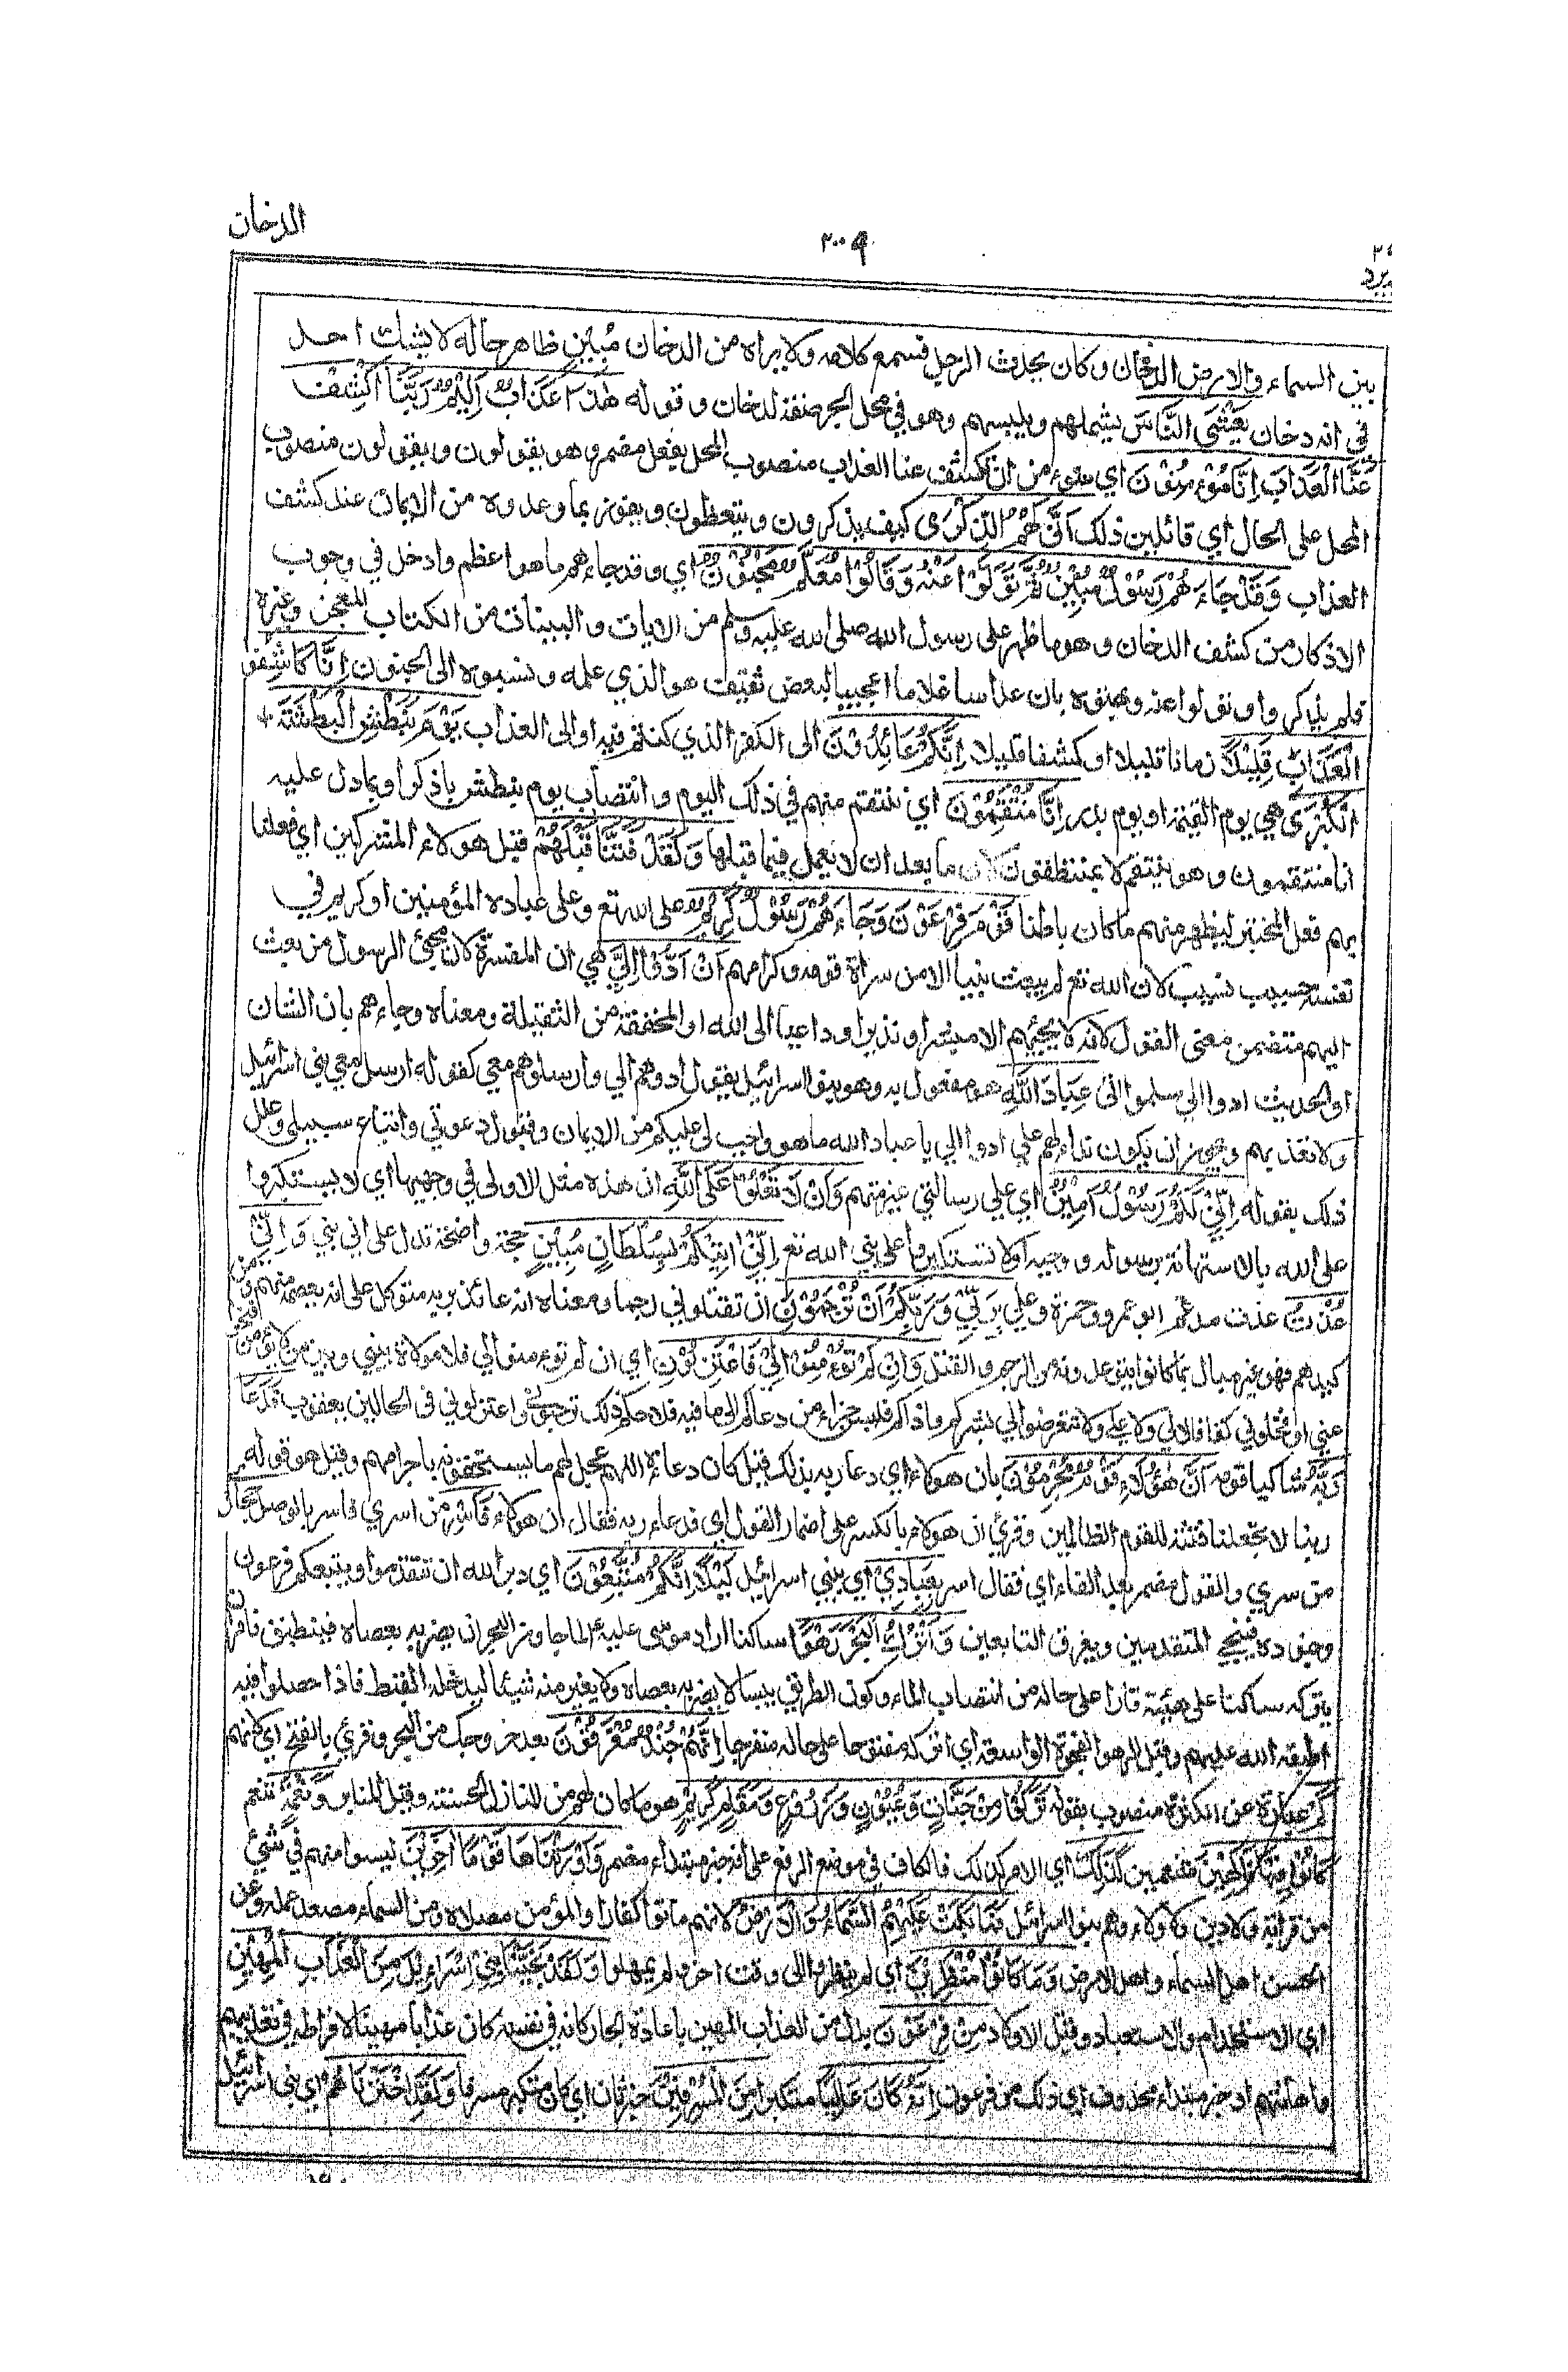 الدخان
٢٠٠٩
٢٤
يرد
بين السماء والارض الدخان وكان يحدث الرجل فيسمع كلامه ولا يراه من الدخان مُّبِيْنٍ ظاهر حاله لا يشك احد
في انه دخان يَغْشَى النَّاسَ يشملهم ويلبسهم وهو في محل الجر صفة لدخان وقوله هٰذَا عَذَابٌ اَلِيْمٌ رَبَّنَا اكْشِفْ
عَنَّا الْعَذَابَ اِنَّا مُؤْمِنُوْنَ اي سنؤمن ان تكشف عنا العذاب منصوب المحل بفعل مضمر وهو يقولون ويقولون منصوب
المحل على الحال اي قائلين ذلك اَنّٰى لَهُمُ الذِّكْرٰى كيف يذكرون ويتعظون ويفون بما وعدوه من الايمان عند كشف
العذاب وَقَدْ جَاءَهُمْ رَسُوْلٌ مُّبِيْنٌ ثُمَّ تَوَلَّوْا عَنْهُ وَقَالُوْا مُعَلَّمٌ مَّجْنُوْنٌ اي وقد جاءهم ما هو اعظم وادخل في وجوب
الاذكار من كشف الدخان وهو ما ظهر على رسول الله صلى الله عليه وسلم من الايات والبينات من الكتاب المعجز وغيره
فلم يذكروا وتولوا عنه وبهتوه بان عداسا غلاما اعجميا لبعض ثقيف هو الذي علمه ونسبوه الى الجنون اِنَّا كَاشِفُوا
الْعَذَابِ قَلِيْلًا زمانا قليلا او كشفا قليلا اِنَّكُمْ عَائِدُوْنَ الى الكفر الذي كنتم فيه او الى العذاب يَوْمَ نَبْطِشُ الْبَطْشَةَ
الْكُبْرٰى هي يوم القيمة او يوم بدر اِنَّا مُنْتَقِمُوْنَ اي ننتقم منهم في ذلك اليوم وانتصاب يوم نبطش باذكر او بما دل عليه
انا منتقمون وهو ننتقم لا بمنتقمون لان ما بعد ان لا يعمل فيما قبلها وَلَقَدْ فَتَنَّا قَبْلَهُمْ قبل هولاء المشركين اي فعلنا
بهم فعل المختبر ليظهر منهم ما كان باطنا قَوْمَ فِرْعَوْنَ وَجَاءَهُمْ رَسُوْلٌ كَرِيْمٌ على الله تع وعلى عباده المؤمنين او كريم في
نفسه حسيب نسيب لان الله تع لم يبعث نبيا الا من سراة قومه وكرامهم اَنْ اَدُّوْا اِلَيَّ هي ان المفسرة لان مجئ الرسول من بعث
اليهم متضمن معنى القول لانه لا يجيئهم الا مبشرا ونذيرا وداعيا الى الله او المخففة من الثقيلة ومعناه وجاءهم بان الشان
او الحديث ادوا الي سلموا الي عِبَادَ اللّٰهِ هو مفعول به وهو بنو اسرائيل يقول ادوهم الي وارسلوهم معي كقوله ارسل معي بني اسرائيل
ولا تعذبهم ويجوز ان يكون نداء لهم على ادوا الي يا عباد الله ما هو واجب لي عليكم من الايمان وقبول دعوتي واتباع سبيلي وعلل
ذلك بقوله اِنِّيْ لَكُمْ رَسُوْلٌ اَمِيْنٌ اي على رسالتي غير متهم وَاَنْ لَّا تَعْلُوْا عَلَى اللّٰهِ ان هذه مثل الاولى في وجهيها اي لا تستكبروا
على الله بالاستهانة برسوله ووحيه او لا تستكبروا على نبي الله تع اِنِّيْ اٰتِيْكُمْ بِسُلْطَانٍ مُّبِيْنٍ حجة واضحة تدل على اني نبي وَاِنِّيْ
عُذْتُ عذت مدغم ابو عمرو وحمزة وعلي بِرَبِّيْ وَرَبِّكُمْ اَنْ تَرْجُمُوْنِ ان تقتلوني رجما ومعناه انه عائذ بربه متوكل على انه يعصمه منهم ومن
كيدهم فهو غير مبال بما كانوا يتوعدونه من الرجم والقتل وَاِنْ لَّمْ تُؤْمِنُوْا لِيْ فَاعْتَزِلُوْنِ اي ان لم تؤمنوا لي فلا موالاة بيني وبين من لا يؤمن
عني او فخلوني كفافا لا لي ولا علي ولا تتعرضوا لي بشركم واذاكم فليس جزاء من دعاكم الى ما فيه فلاحكم ذلك ترجموني واعتزلوني في الحالين يعقوب فَدَعَا
رَبَّهُ شاكيا قومه اَنَّ هٰؤُلَاءِ قَوْمٌ مُّجْرِمُوْنَ بان هولاء اي دعا ربه بذلك قيل كان دعاؤه اللهم عجل لهم ما يستحقونه باجرامهم وقيل هو قوله
ربنا لا تجعلنا فتنة للقوم الظالمين وقرئ ان هولاء بالكسر على اضمار القول اي فدعا ربه فقال ان هولاء فَاَسْرِ من اسرى فاسر بالوصل حجازي
من سرى والقول مضمر بعد الفاء اي فقال اسر بِعِبَادِيْ اي ببني اسرائيل لَيْلًا اِنَّكُمْ مُّتَّبَعُوْنَ اي دبر الله ان تتقدموا ويتبعكم فرعون
وجنوده فينجي المتقدمين ويغرق التابعين وَاتْرُكِ الْبَحْرَ رَهْوًا ساكنا اراد موسى عليه لما جاوز البحر ان يضربه بعصاه فينطبق فامر ان
يتركه ساكنا على هيئته قارا على حاله من انتصاب الماء وكون الطريق يبسا لا يضربه بعصاه ولا يغير منه شيئا ليدخله القبط فاذا حصلوا فيه
اطبقه الله عليهم وقيل الرهو الفجوة الواسعة اي اتركه مفتوحا على حاله منفرجا اِنَّهُمْ جُنْدٌ مُّغْرَقُوْنَ بعد خروجك من البحر وقرئ بالفتح اي لانهم
كَمْ عبارة عن الكثرة منصوب بقوله تَرَكُوْا مِنْ جَنَّاتٍ وَعُيُوْنٍ وَزُرُوْعٍ وَمَقَامٍ كَرِيْمٍ هو ما كان لهم من المنازل الحسنة وقيل المنابر وَنَعْمَةٍ تنعم
كَانُوْا فِيْهَا فَاكِهِيْنَ متنعمين كَذٰلِكَ اي الامر كذلك فالكاف في موضع الرفع على انه خبر مبتداء مضمر وَاَوْرَثْنَاهَا قَوْمًا اٰخَرِيْنَ ليسوا منهم في شيئ
من قرابة ولا دين ولا ولاء وهم بنو اسرائيل فَمَا بَكَتْ عَلَيْهِمُ السَّمَاءُ وَالْاَرْضُ لانهم ماتوا كفارا والمؤمن مصلاه ومن السماء مصعد عمله وعن
الحسن اهل السماء واهل الارض وَمَا كَانُوْا مُنْظَرِيْنَ اي لم ينظروا الى وقت اخر ولم يمهلوا وَلَقَدْ نَجَّيْنَا بَنِيْ اِسْرَاءِيْلَ مِنَ الْعَذَابِ الْمُهِيْنِ
اي الاستخدام والاستعباد وقتل الاولاد مِنْ فِرْعَوْنَ بدل من العذاب المهين باعادة الجار كانه في نفسه كان عذابا مهينا لافراطه في تعذيبهم
واهانتهم او خبر مبتداء محذوف اي ذلك من فرعون اِنَّهُ كَانَ عَالِيًا متكبرا مِّنَ الْمُسْرِفِيْنَ خبر ثان اي كان متكبرا مسرفا وَلَقَدِ اخْتَرْنَاهُمْ اي بني اسرائيل